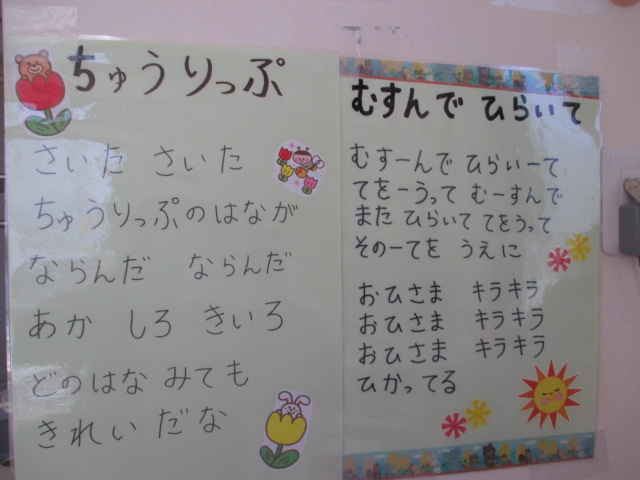 ちゅうりっぷ
さいた さいた
ちゅうりっぷのはなが
ならんだ ならんだ
あか しろ きいろ
どのはな みても
きれい だな
むすんで ひらいて
むすーんで ひらいーて
てをーうって むーすんで
また ひらいて てをうって
そのーてを うえに
おひさま キラキラ
おひさま キラキラ
おひさま キラキラ
ひかってる